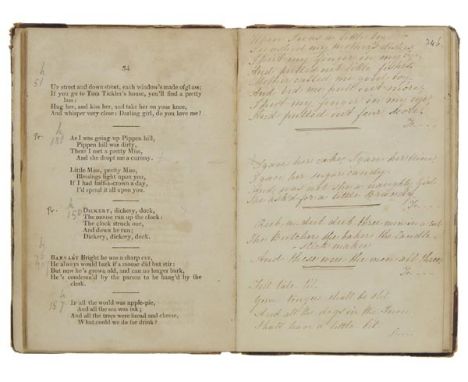 34
h
51
UP street and down street, each window's made of glass;
If you go to Tom Tickler's house, you'll find a pretty
lass:
Hug her, and kiss her, and take her on your knee,
And whisper very close: Darling girl, do you love me?
Pr.
As I was going up Pippen hill,
Pippen hill was dirty,
There I met a pretty Miss,
And she dropt me a curtsy.
Little Miss, pretty Miss,
Blessings light upon you,
If I had half-a-crown a day,
I'd spend it all upon you.
Pr.
h
150
DICKERY, dickery, dock,
The mouse ran up the clock;
The clock struck one,
And down he run;
Dickery, dickery, dock.
h
BARNABY Bright he was a sharp cur,
He always would bark if a mouse did but stir;
But now he's grown old, and can no longer bark,
He's condemn'd by the parson to be hang'd by the
clerk.
h
157
IF all the world was apple-pie,
And all the sea was ink;
And all the trees were bread and cheese,
What could we do for drink?
246
When I was a little boy
I washed my mother's dishes
I put my finger in my eye
And pulled out little fishes
Mother called me good boy
And bid me pull out more
I put my finger in my eye
And pulled out four score
I gave her cakes, I gave her
I gave her sugar candy
the naughty girl
She asked for a little Brandy
Rub a dub dub three men in a tub
The Butcher the baker the Candle
stick maker
And these were the men all three
Tell tale tit
Your tongue shall be slit
And all the dogs in the Town
Shall have a little bit